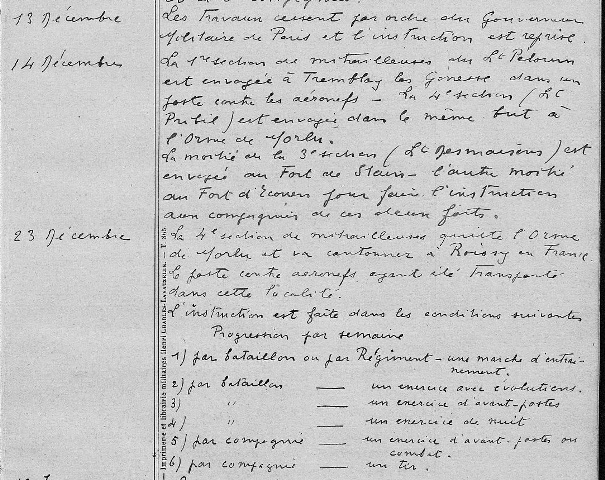 13 Décembre
Les Travaux cessent par ordre du Gouverneur
Militaire de Paris et l'instruction est reprise.
14 Décembre
La 1re section de mitrailleuses du Lt
est envoyée à Tremblay les Gonesse dans un
poste contre les aéronefs - La 4e section (Lt
Pribil) est envoyée dans le même but à
l'Orme de Morlu.
La moitié de la 3e section (Lt Desmaisons) est
envoyée au Fort de Stains - l'autre moitié
au Fort d'Ecouen pour faire l'instruction
aux compagnies de ces deux forts.
23 Décembre
La 4e section de mitrailleuses quitte l'Orme
de Morlu et va cantonner à Roissy en France
le poste contre aéronefs ayant été transporté
dans cette localité.
L'instruction est faite dans les conditions suivantes
Progression par semaine
1) par bataillon ou par Régiment - une marche d'entrai-
nement.
2) par bataillon — un exercice avec évolutions.
3) " — un exercice d'avant-postes
4) " — un exercice de nuit
5) par compagnie — un exercice d'avant-postes ou
combat.
6) par compagnie — un tir.
Imprimerie et librairie militaires Henri CHARLES-LAVAUZELLE.